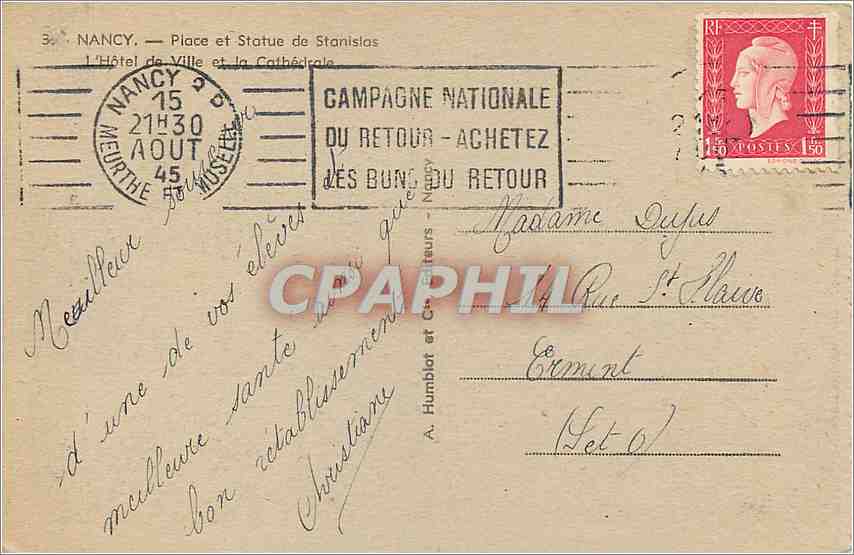 NANCY. — Place et Statue de Stanislas
L'Hôtel de Ville et la Cathédrale
NANCY
15
21H30
AOUT
45
MEURTHE ET MOSELLE
CAMPAGNE NATIONALE
DU RETOUR - ACHETEZ
LES BONS DU RETOUR
RF
1F50 POSTES 1F50
Meilleur souvenir
d'une de vos élèves
meilleure santé ainsi que
bon rétablissement
Christiane
A. Humblot et Cie Editeurs - Nancy
CPAPHIL
Madame Dupis
14 Rue St Flaive
Erment
(Set O)